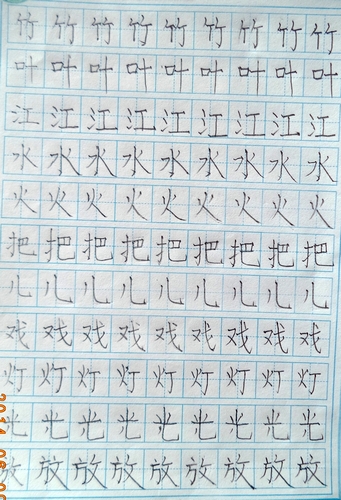 竹竹竹竹竹竹竹竹竹
叶叶叶叶叶叶叶叶叶
江江江江江江江江江
水水水水水水水水水
火火火火火火火火火
把把把把把把把把把
儿儿儿儿儿儿儿儿儿
戏戏戏戏戏戏戏戏戏
灯灯灯灯灯灯灯灯灯
光光光光光光光光光
放放放放放放放放放